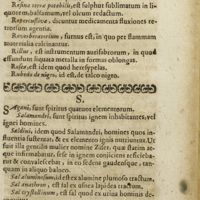 Resina terræ potabilis, est sulphur sublimatum in li-
quorem, balsamum, vel oleum redactum.
Repercussiva, dicuntur medicamenta fluxiones re-
trorsum agentia.
Reverberatorium, furnus est, in quo per flammam
materialia calcinantur.
Rillus, est instrumentum aurifabrorum, in quod
effundunt liquata metalla in formas oblongas.
Rosea, est idem quod heresypelas.
Rubedo de nigro, id est, de talco nigro.
S.
Sagani, sunt spiritus quatuor elementorum.
Salamandri, sunt spiritus ignem inhabitantes, vel
ignei homines.
Saldini, idem quod Salamandri, homines quos in-
fluentia sustentat, & exercent elementi ignis nutrimenta. Ut
fuit illa gentilis mulier nomine
asseruerint, fese in ignem conjiciens
& contabescebat, in eo sedens gaudesque, tan-
quam in balneo optato.
Sal aluminosum, id est ex alumine plumoso tractum,
Sal anathron, est sal ex usnea lapidea tractum,
Sal crystallinum, est sal quod ex urina hominis de-